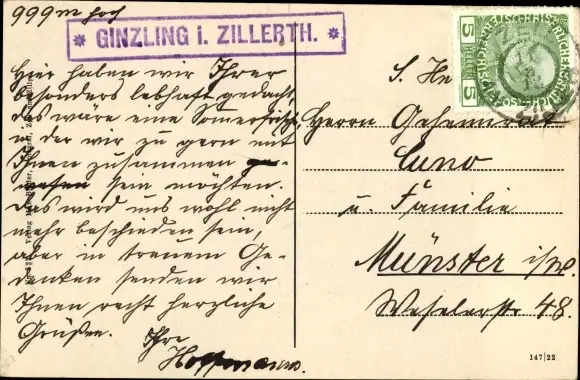 999 m hoch
* GINZLING i. ZILLERTH. *
Hier haben wir Ihrer
besonders lebhaft gedacht,
das wäre eine Sommerfrische,
in der wir zu gern mit
Ihnen zusammen ge-
wesen sein möchten.
Das wird uns wohl nicht
mehr beschieden sein,
aber in treuem Ge-
denken senden wir
Ihnen recht herzliche
Grüßen. Ihre
Hoffmanns.
5 5
S. H
Herrn Geheimrat
Cuno
u. Familie
Münster i/W.
Weselerstr 48.
147|22